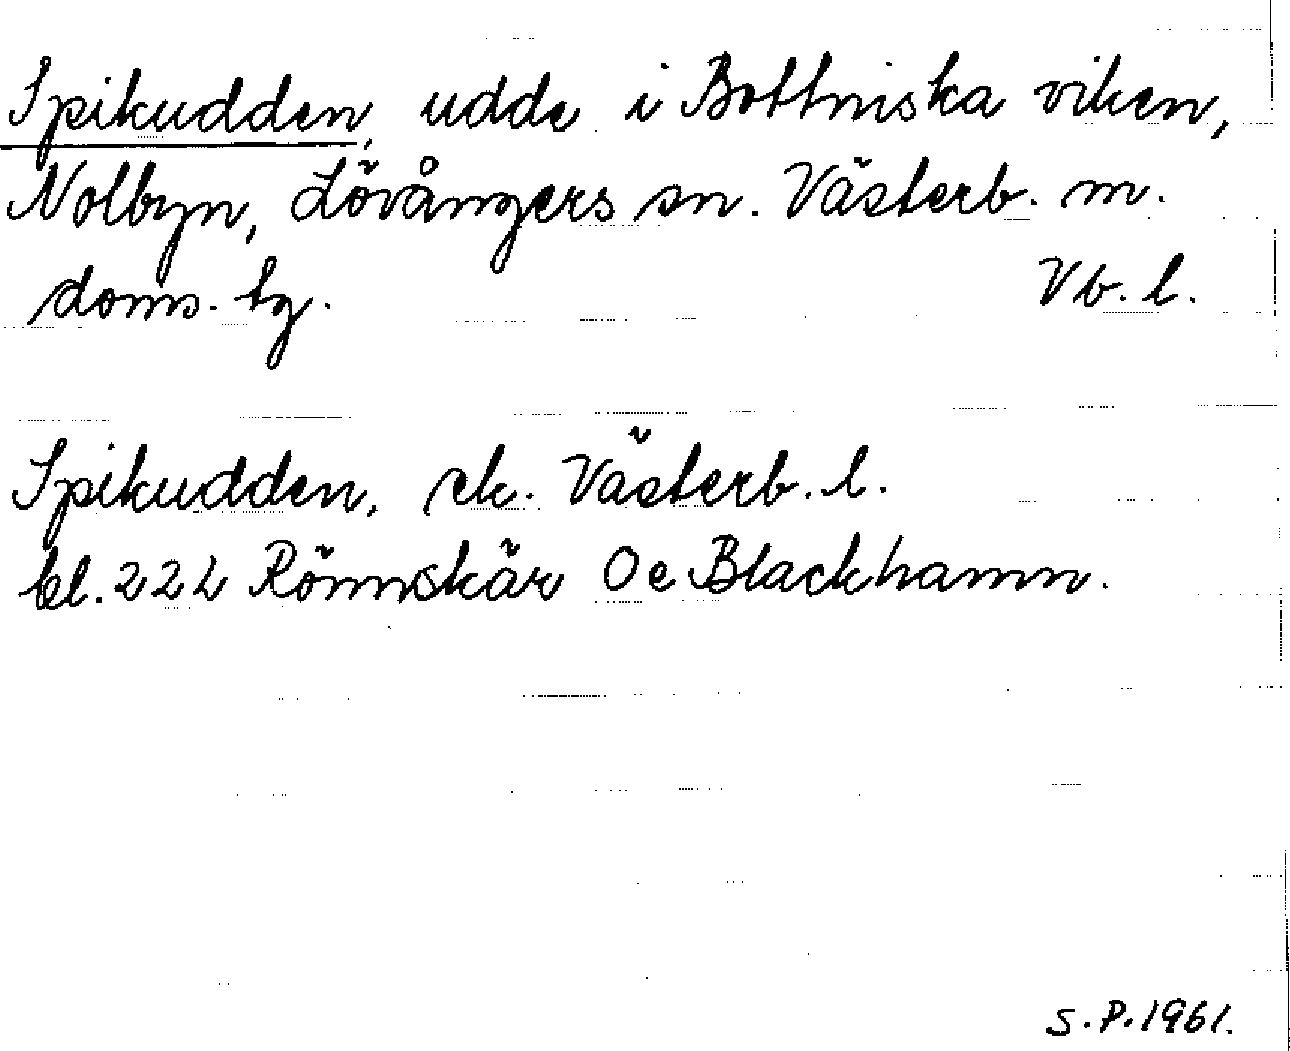 Spikudden, udde i Bottniska viken,
Nolbyn, Lövångers sn. Västerb. m.
doms. hg. Vb. l.
Spikudden, ek. Västerb. l.
bl. 222 Rönnskär Oe Blackhamn.
S.P. 1961.